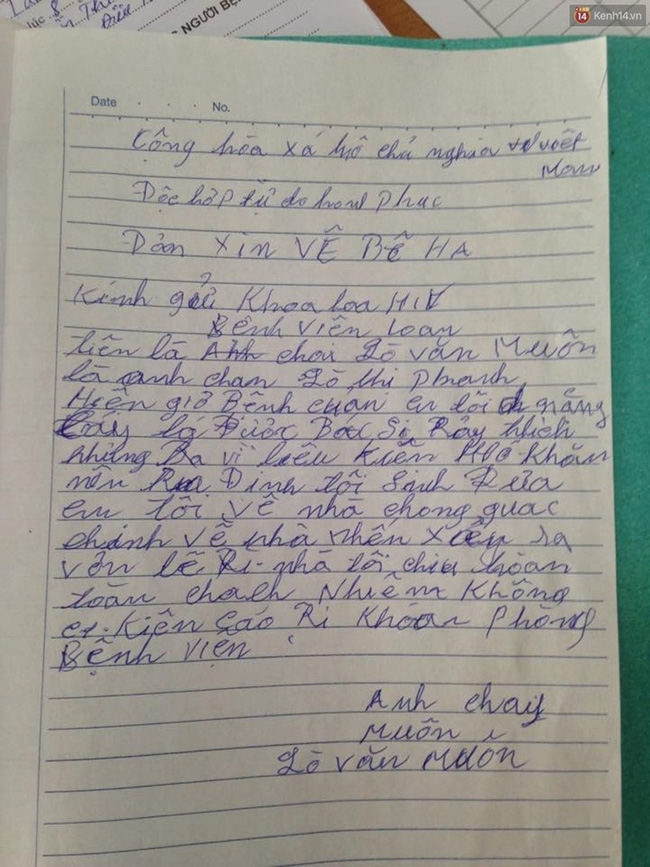 Kenh14.vn
NGƯỜI BỆ
Date . . . No.
Cộng hòa xá hộ chủ nghĩa việt
Man
Độc hớp tử do hanh Phục
Dản XIN VỄ BỄ HA
Kính gửi Khoa loa HIV
Bệnh Viên Loan
tiên là Anh chai Lò văn Muôn
là anh cham Lò thi Phanh
Hiên giờ Bệnh cuản em tôi nắng
Được Bac Sĩ Rảy thích
nhưng Ba vì liêu Kiên Khăn
nên Ra Đinh tôi Sinh Rửa
em tôi về nhà chong quac
chinh về nhà nhên xảy ra
vớn lễ Ri nhà tôi chiu hoan
toàn chach Nhiễm Không
Kiên Cáo Ri Khoar Phòng
Bệnh Viện
Anh chay
Muôn
Lò văn Muốn